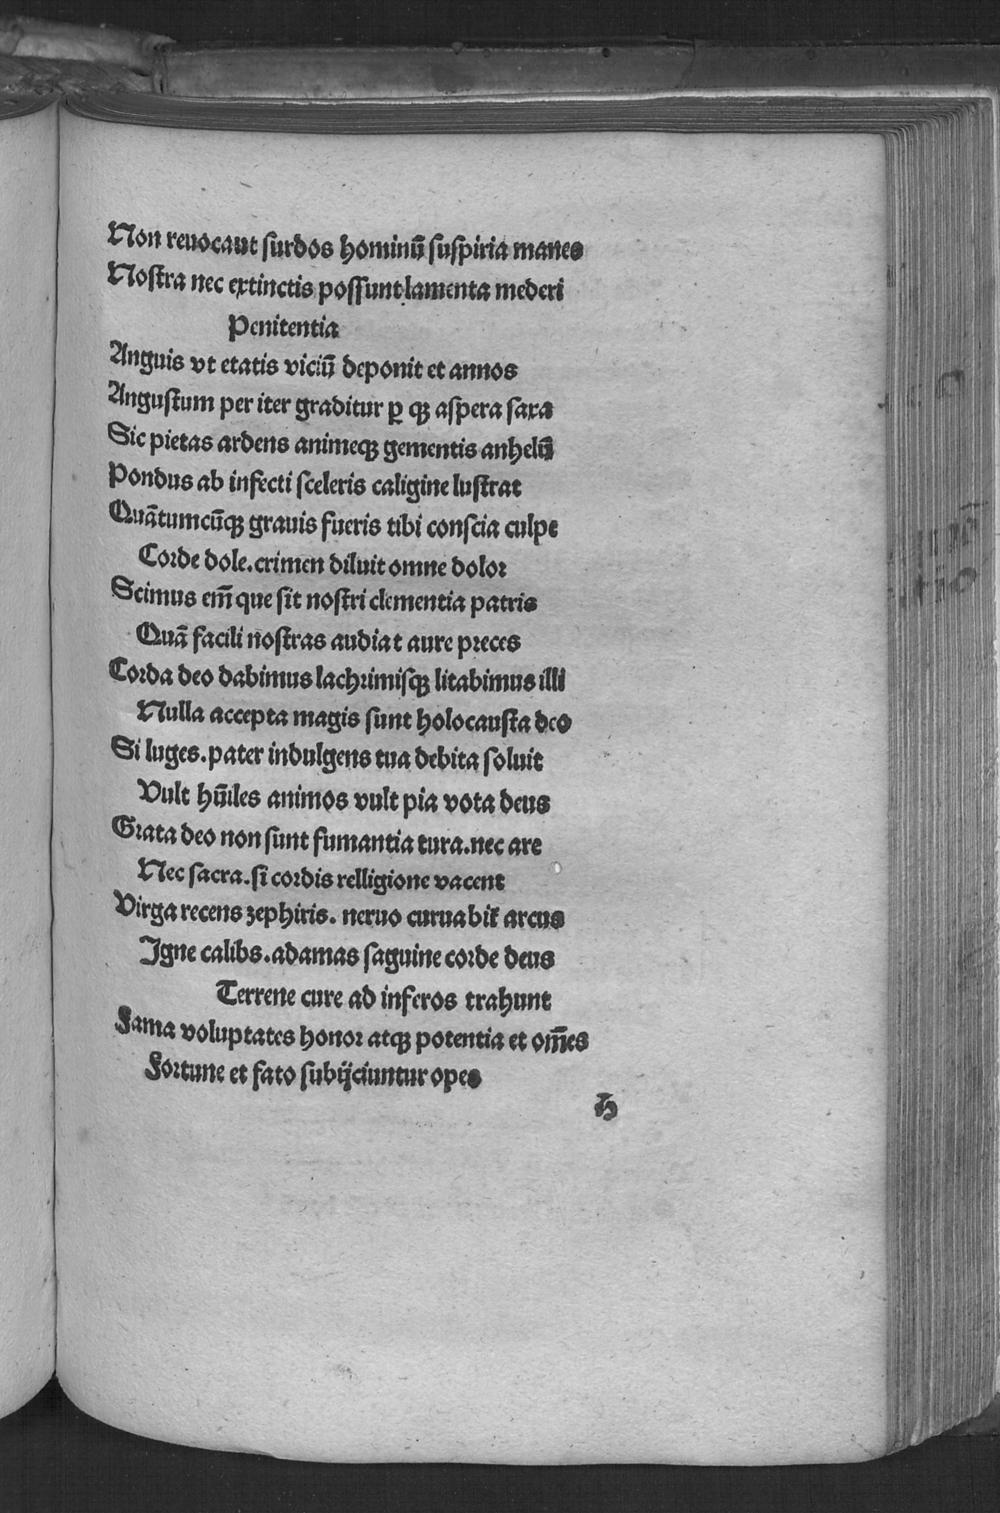 Non reuocant surdos hominū suspiria manes
Nostra nec extinctis possunt lamenta mederi
Penitentia
Anguis vt etatis viciū deponit et annos
Angustum per iter graditur ꝑ qꝫ aspera saxa
Sic pietas ardens animeqꝫ gementis anhelū
Pondus ab infecti sceleris caligine lustrat
Quātumcūqꝫ grauis fueris tibi conscia culpe
Corde dole. crimen diluit omne dolor
Scimus em̄ que sit nostri clementia patris
Quā facili nostras audiat aure preces
Corda deo dabimus lachrimisqꝫ litabimus illi
Nulla accepta magis sunt holocausta deo
Si luges. pater indulgens tua debita soluit
Vult hūiles animos vult pia vota deus
Grata deo non sunt fumantia tura. nec are
Nec sacra. si cordis relligione vacent
Virga recens zephiris. neruo curuabit̄ arcus
Igne calibs. adamas saguine corde deus
Terrene cure ad inferos trahunt
Fama voluptates honor atqꝫ potentia et om̄es
Fortune et fato subijciuntur opes
h